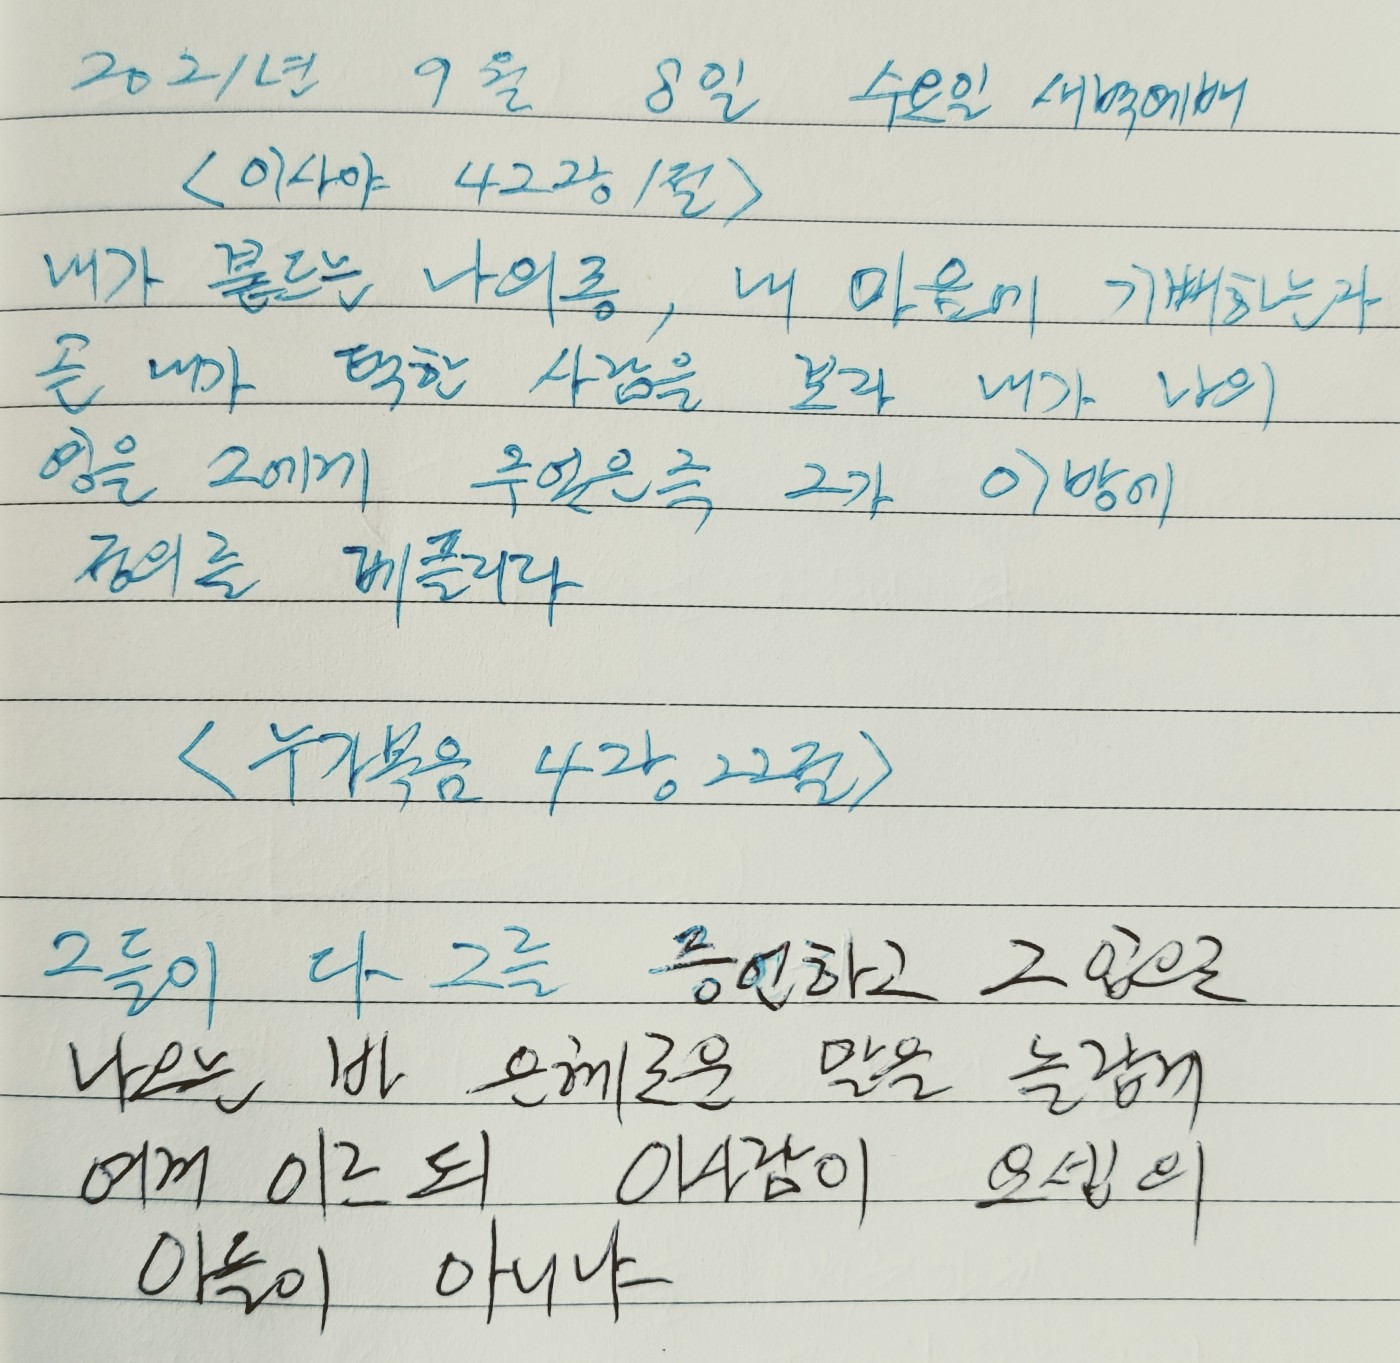 2021년 9월 8일 수요일 새벽예배
<이사야 42장 1절>
내가 붙드는 나의종, 내 마음에 기뻐하는자
곧 내가 택한 사람을 보라 내가 나의
영을 그에게 주었은즉 그가 이방에
정의를 베플리라
<누가복음 4장 22절>
그들이 다 그를 증언하고 그 입으로
나오는 바 은혜로운 말을 놀랍게
여겨 이르되 이사람이 요셉의
아들이 아니냐